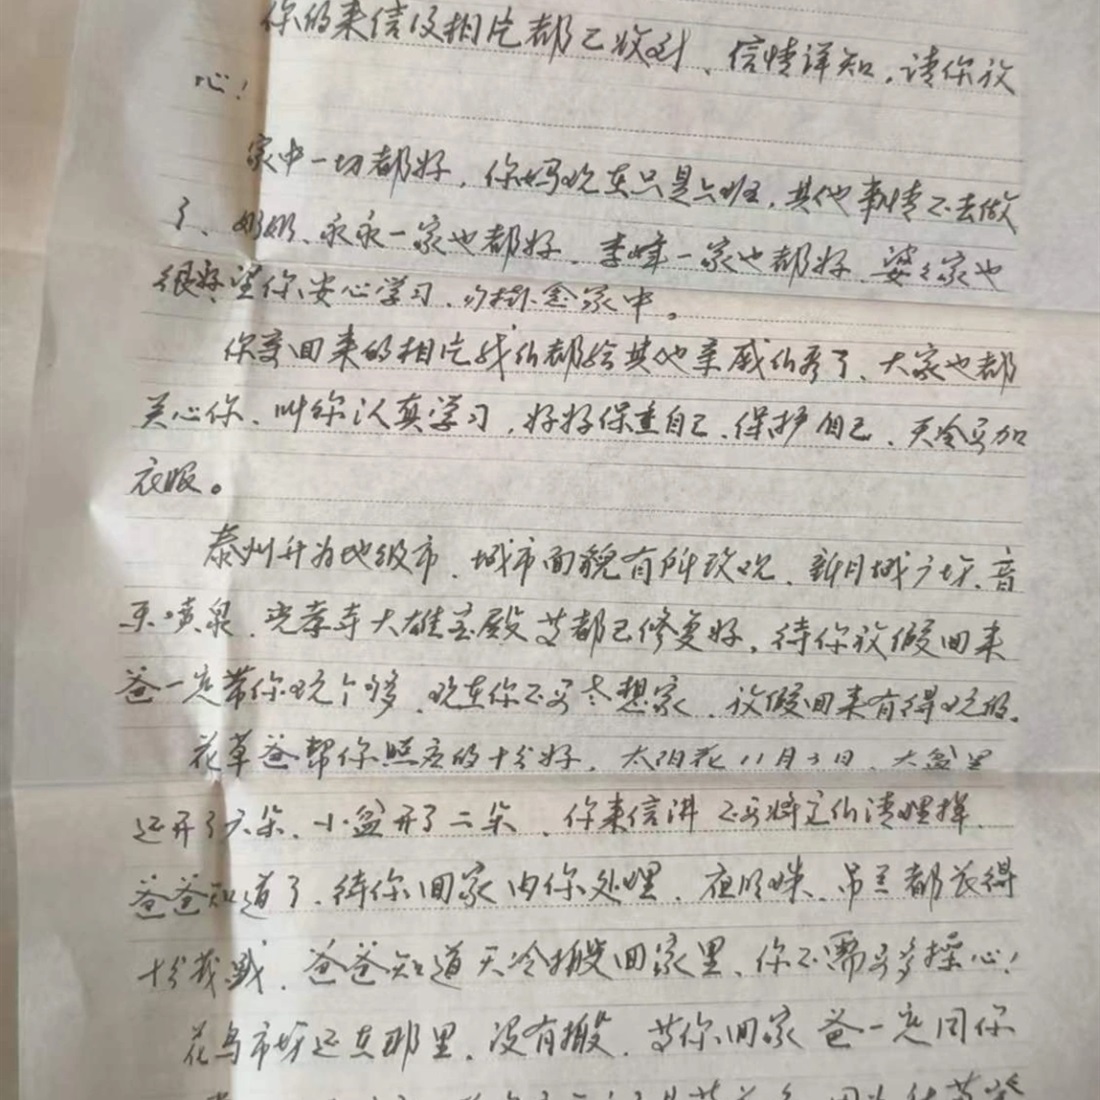 你的来信及相片都已收到、信情详知，请你放
心！
家中一切都好，你妈现在只是上班，其他事情不去做
了、奶奶、永永一家也都好、李峰一家也都好、婆婆家也
很好，望你安心学习、勿挂念家中。
你寄回来的相片我们都给其他亲戚们看了、大家也都
关心你、叫你认真学习，好好保重自己、保护自己、天冷多加
衣服。
泰州升为地级市、城市面貌有所改观、新月城广场、音
乐喷泉、光孝寺大雄宝殿等都已修复好，待你放假回来
爸一定带你玩个够、现在你不要尽想家、放假回来有得玩的。
花草爸帮你照应的十分好，太阳花11月3日、大盆里
还开了六朵、小盆开了二朵、你来信讲不要将它们清理掉、
爸爸知道了、待你回家由你处理、夜明珠、吊兰都长得
十分茂盛、爸爸知道天冷搬回家里、你不需要多操心！
花鸟市场还在那里、没有搬、等你回家爸一定同你